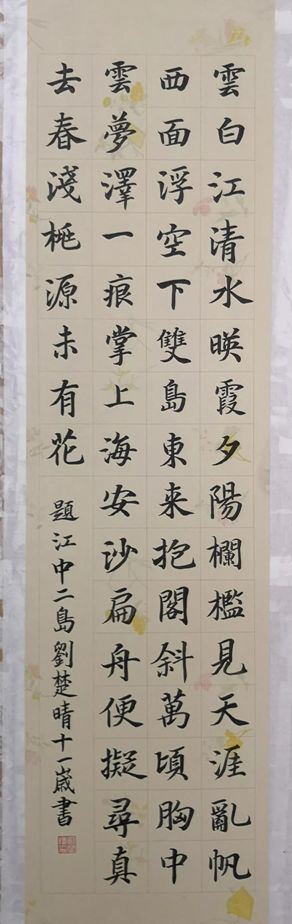 雲白江清水暎霞夕陽欄檻見天涯亂帆
西面浮空下雙島東来抱閣斜萬頃胸中
雲夢澤一痕掌上海安沙扁舟便擬尋真
去春淺桃源未有花
題江中二島劉楚晴十一嵗書